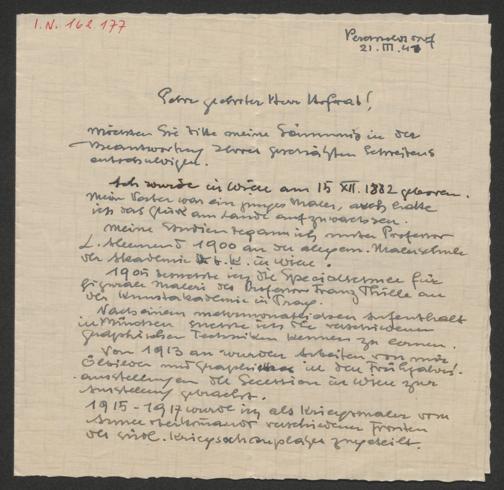 I.N. 162.177
21. III. 4
Sehr geehrter Herr Hofrat!
Möchten Sie bitte meine Säumnis in der
Beantwortung Ihres geschätzten Schreibens
entschuldigen.
Ich wurde in Wien am 15 XII. 1882 geboren.
Mein Vater war ein junger Maler, auch hatte
ich das Glück am Lande aufzuwachsen.
Meine Studien begann ich unter Professor
1900 an der allgem. Malerschule
der Akademie d. b. K. in Wien.
1905 ich die Specialschule für
figurale Malerei des Professor Franz Thiele an
der Kunstakademie in Prag.
Nach einem mehrmonatlichen Aufenthalt
in München suchte ich die verschiedenen
graphischen Techniken kennen zu lernen.
Von 1913 an wurden Arbeiten von mir
Ölbilder und Graphiken in den Frühjahrs-
ausstellungen der Secession in Wien zur
Ausstellung gebracht.
1915-1917 wurde ich als Kriegsmaler vom
Armeeoberkommando verschiedenen Fronten
des südl. Kriegsschauplatzes zugeteilt.